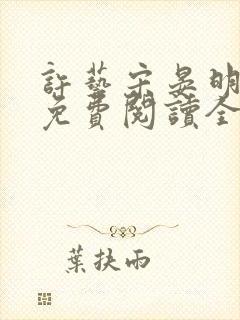 許藝宋晏明
免費閱讀全
葉扶雨